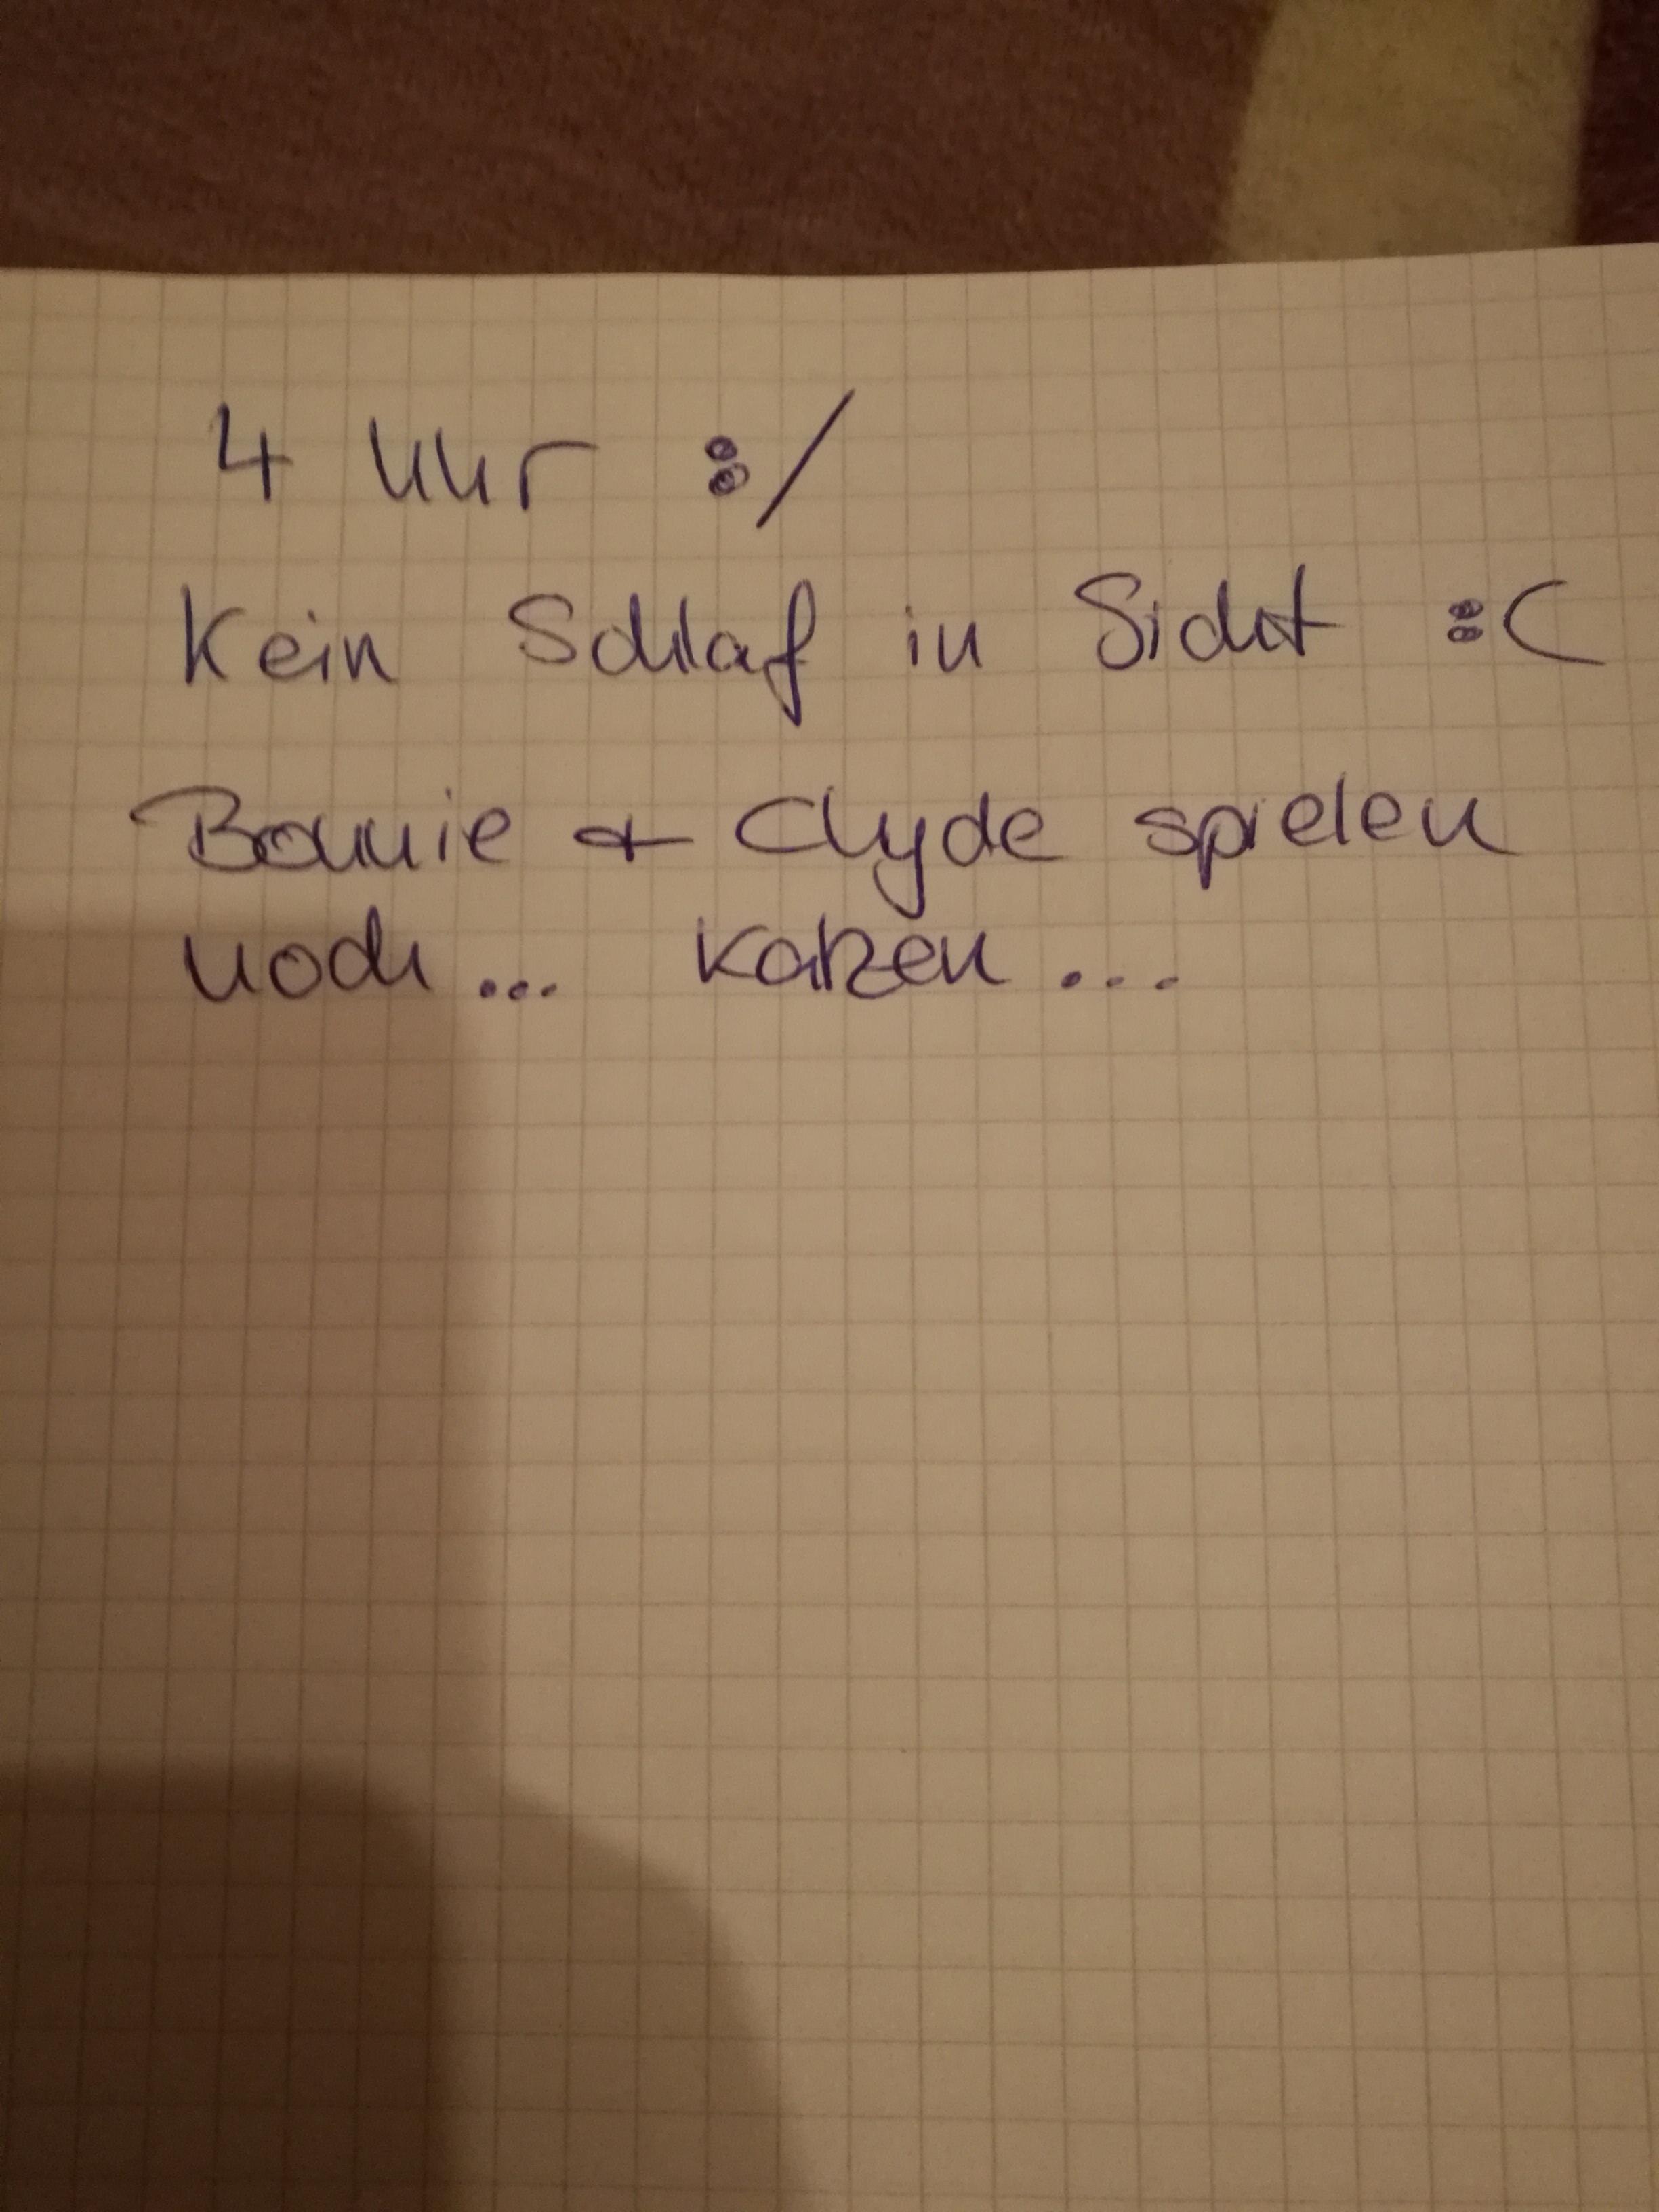 4 Uhr :/
Kein Schlaf in Sicht :(
Bonnie & Clyde spielen
noch... Katzen...